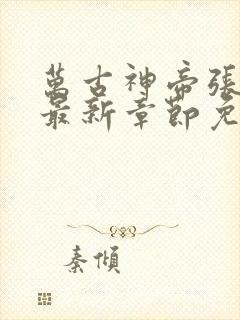 萬古神帝張
最新章節免
秦傾